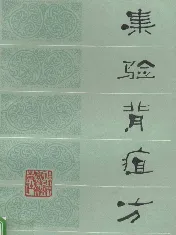 集验背疽方